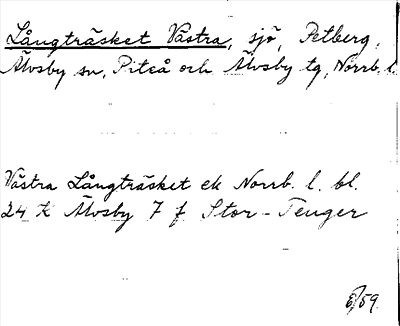 Långträsket Västra, sjö, Petberg,
Älvsby sn, Piteå och Älvsby tg, Norrb. l.
Västra Långträsket ek Norrb. l. bl.
24 K Älvsby 7 f Stor-Tenger
/59.